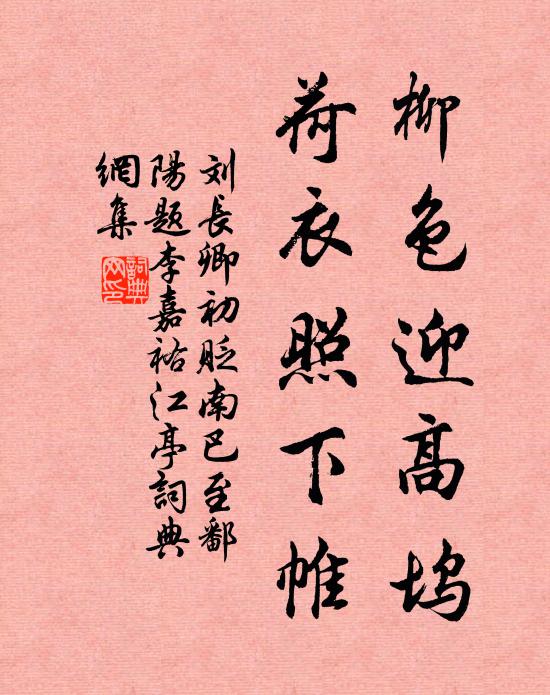 柳色迎高坞
荷衣照下帷
刘長卿初贬南巴至鄱
陽題李嘉祐江亭詞典
網集
詞典網印